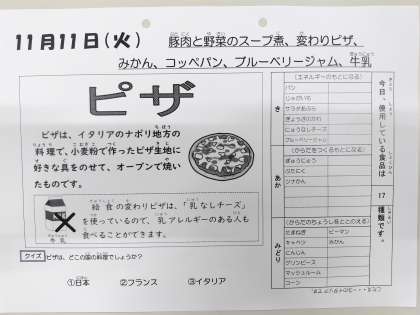 11月11日(火)
豚肉と野菜のスープ煮、変わりピザ、
みかん、コッペパン、ブルーベリージャム、牛乳
ピザ
ピザは、イタリアのナポリ地方の
料理で、小麦粉で作ったピザ生地に
好きな具をのせて、オーブンで焼い
たものです。
牛乳
給食の変わりピザは、「乳なしチーズ」
を使っているので、乳アレルギーのある人も
食べることができます。
クイズ ピザは、どこの国の料理でしょうか?
①日本 ②フランス ③イタリア
今日、使用している食品は
17
種類です。
(エネルギーのもとになる)
き
パン
じゃがいも
ぎょうざのかわ
にゅうなしチーズ
ブルーベリージャム
(からだをつくるもとになる)
あか
ぎゅうにゅう
ぶたにく
ツナかん
(からだのちょうしをととのえる)
みどり
たまねぎ ピーマン
キャベツ みかん
にんじん
グリンピース
マッシュルーム
コーン